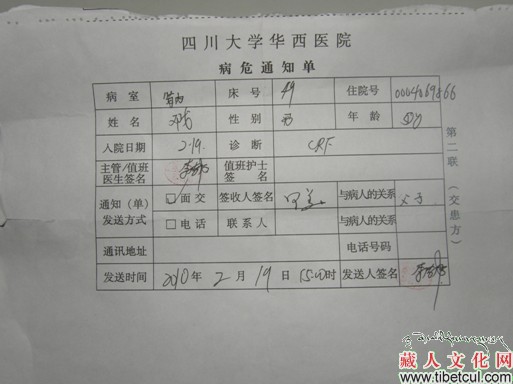 四川大学华西医院
病危通知单
病室 床号 49 住院号 0004069866
姓名 性别 男 年龄
入院日期 2.19. 诊断 CRF
主管/值班医生签名 值班护士签名
通知(单)发送方式 面交 签收人签名 与病人的关系 父子
电话 联系人 与病人的关系
通讯地址 电话号码
发送时间 2010年 2 月 19 日 15:00时 发送人签名
第二联(交患方)
藏人文化网
www.tibetcul.com